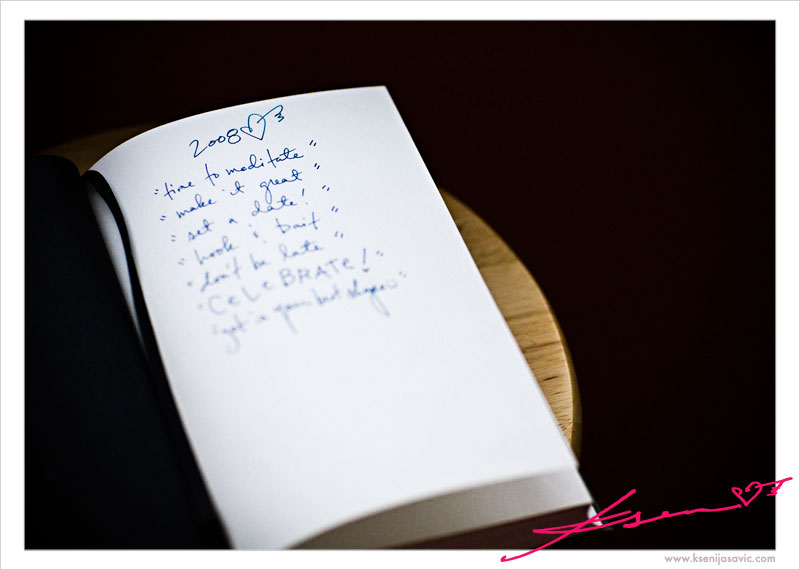 2008
"time to meditate"
"make it great"
"set a date!"
"hook & bait"
"don't be late"
"CeLeBRATe!"
"get in your best shape"
Ksen
www.ksenijasavic.com